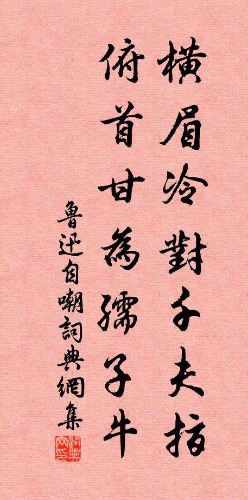 横眉冷對千夫指
俯首甘為孺子牛
魯迅自嘲詞典網集